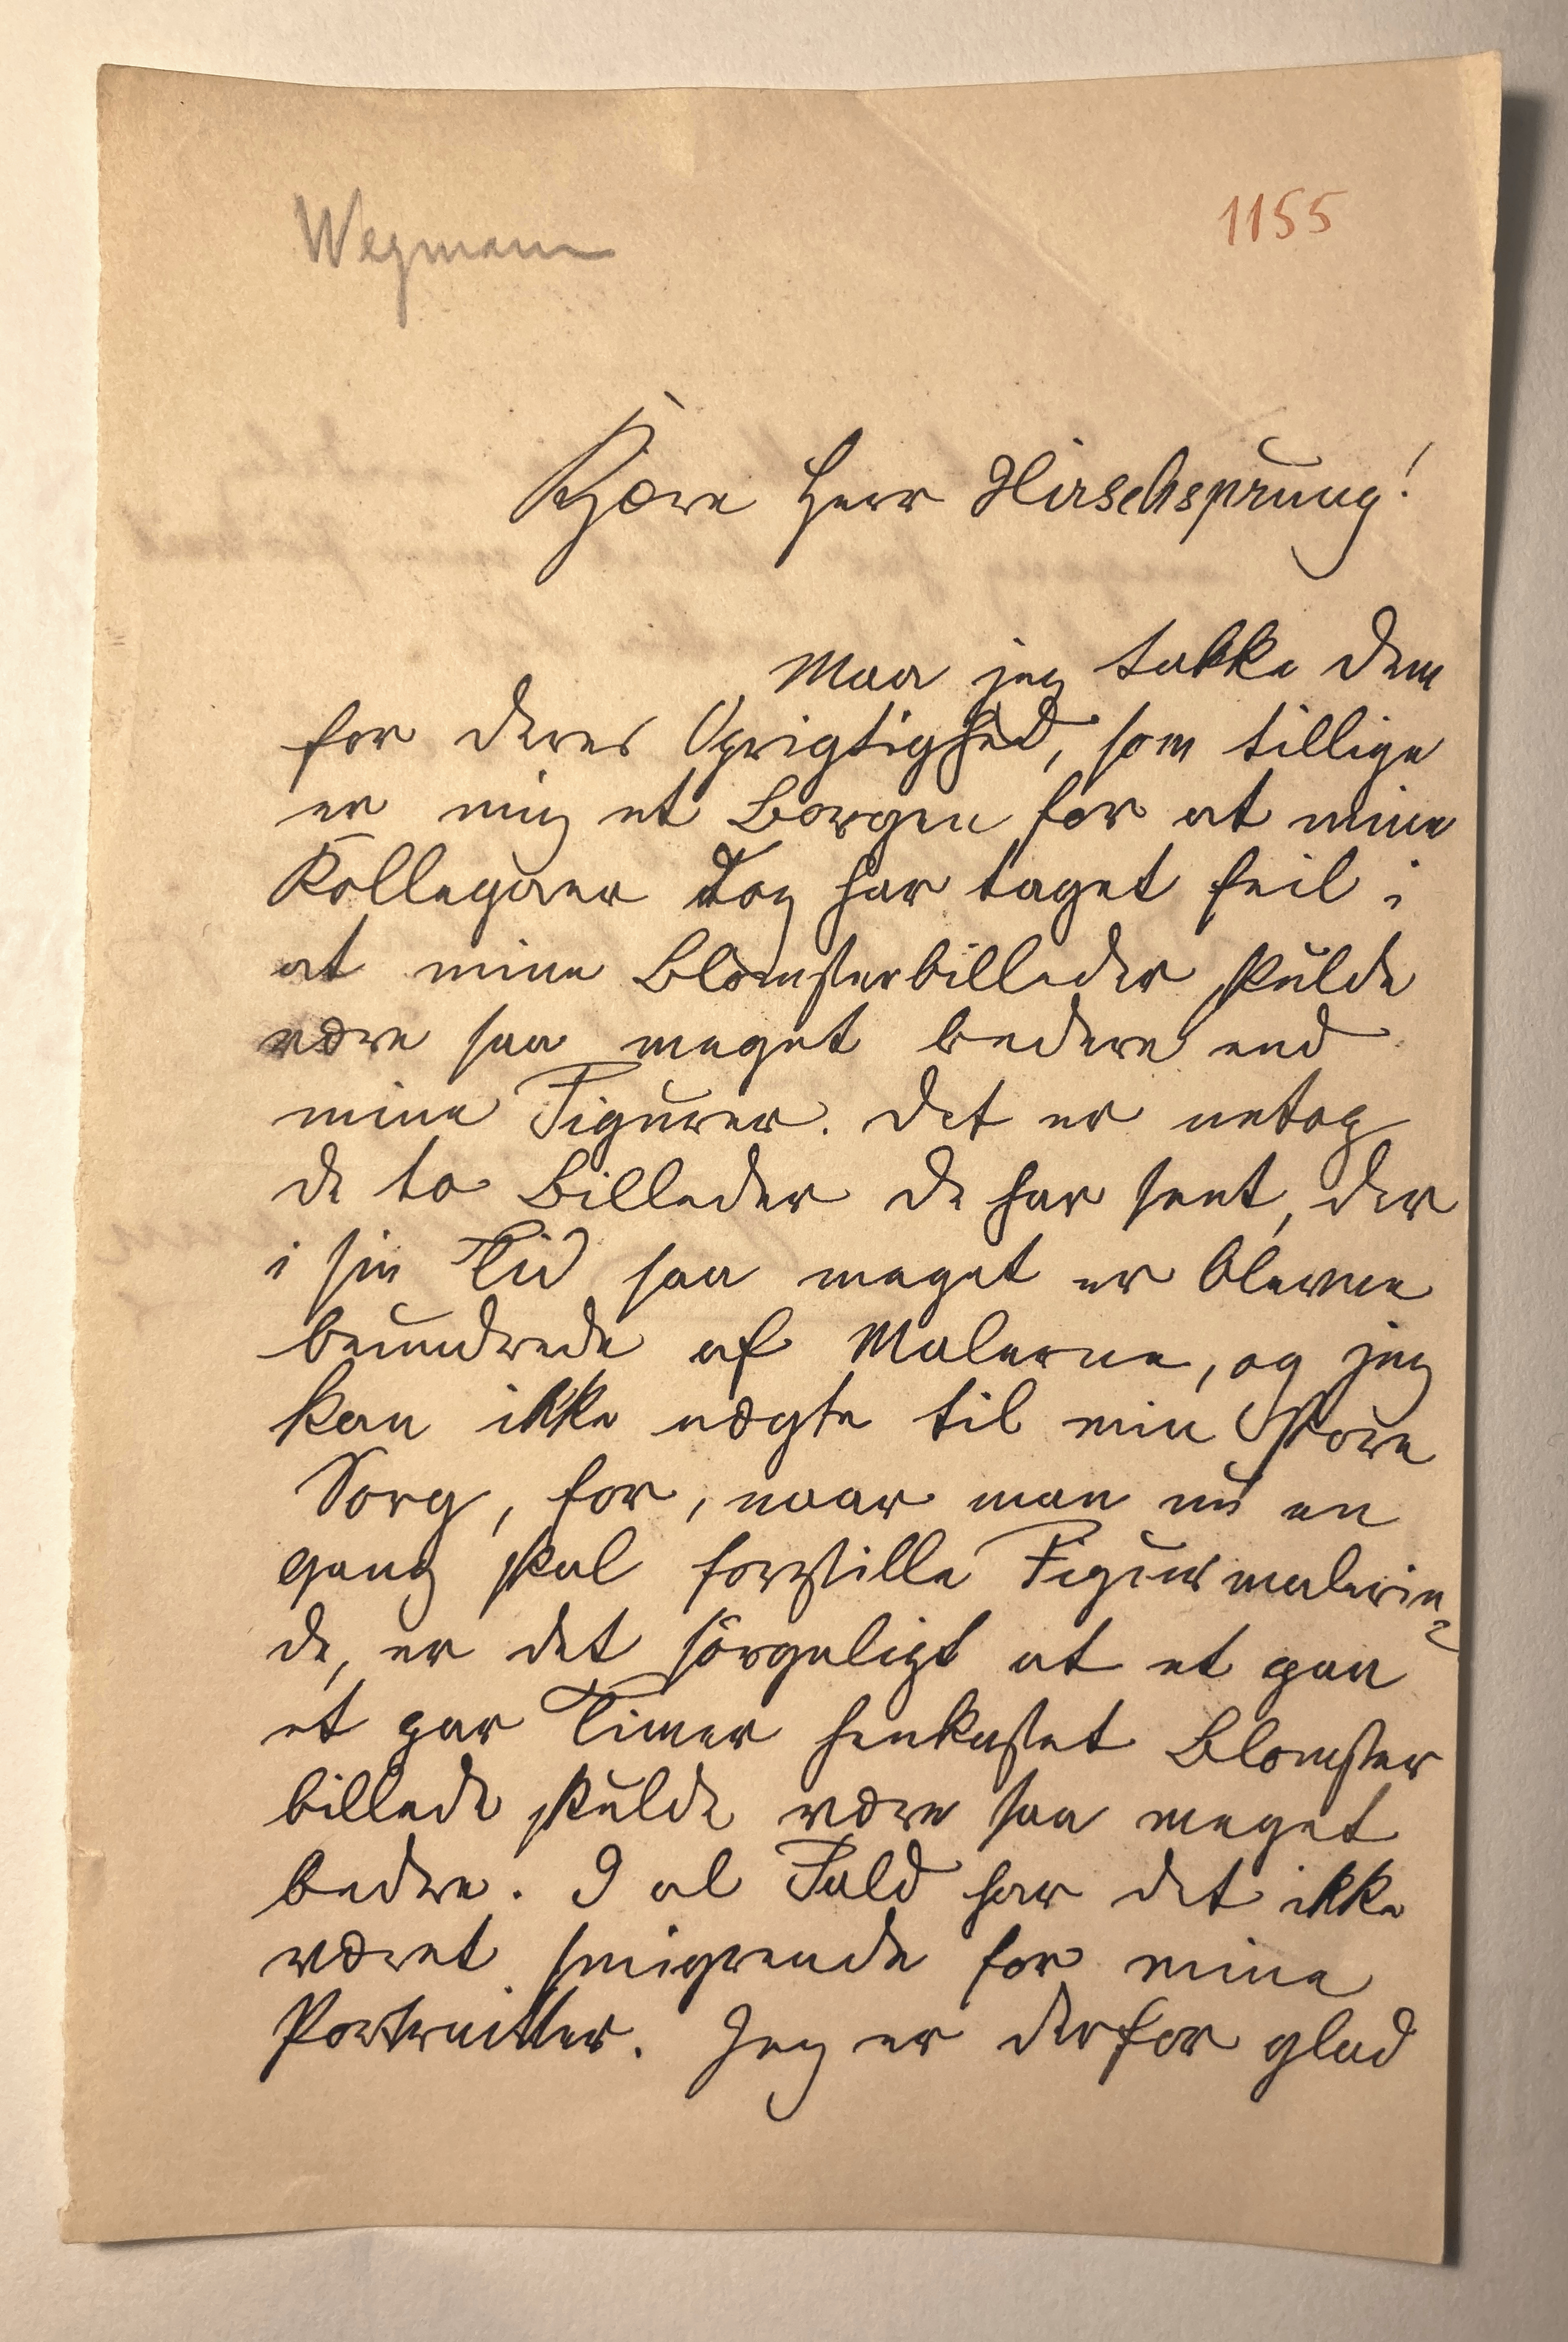 Wegmann
1155
Kjære Herr Hirschsprung!
Maa jeg takke Dem
for Deres Oprigtighed, som tillige
er mig et Borgen for at mine
Kollegaer dog har taget feil i
at mine Blomsterbilleder skulde
være saa meget bedere end
mine Figurer. Det er netop
de to Billeder De har seet, der
i sin Tid saa meget er blevne
beundrede af Malerne, og jeg
kan ikke nægte til min Store
Sorg, for, naar man nu en
gang skal forestille Figurmalerin-
de, er det sørgeligt at et paa
et par Timer henkastet Blomster
billede skulde være saa meget
bedre. I al Fald har det ikke
været smigrende for mine
Portraitter. Jeg er derfor glad